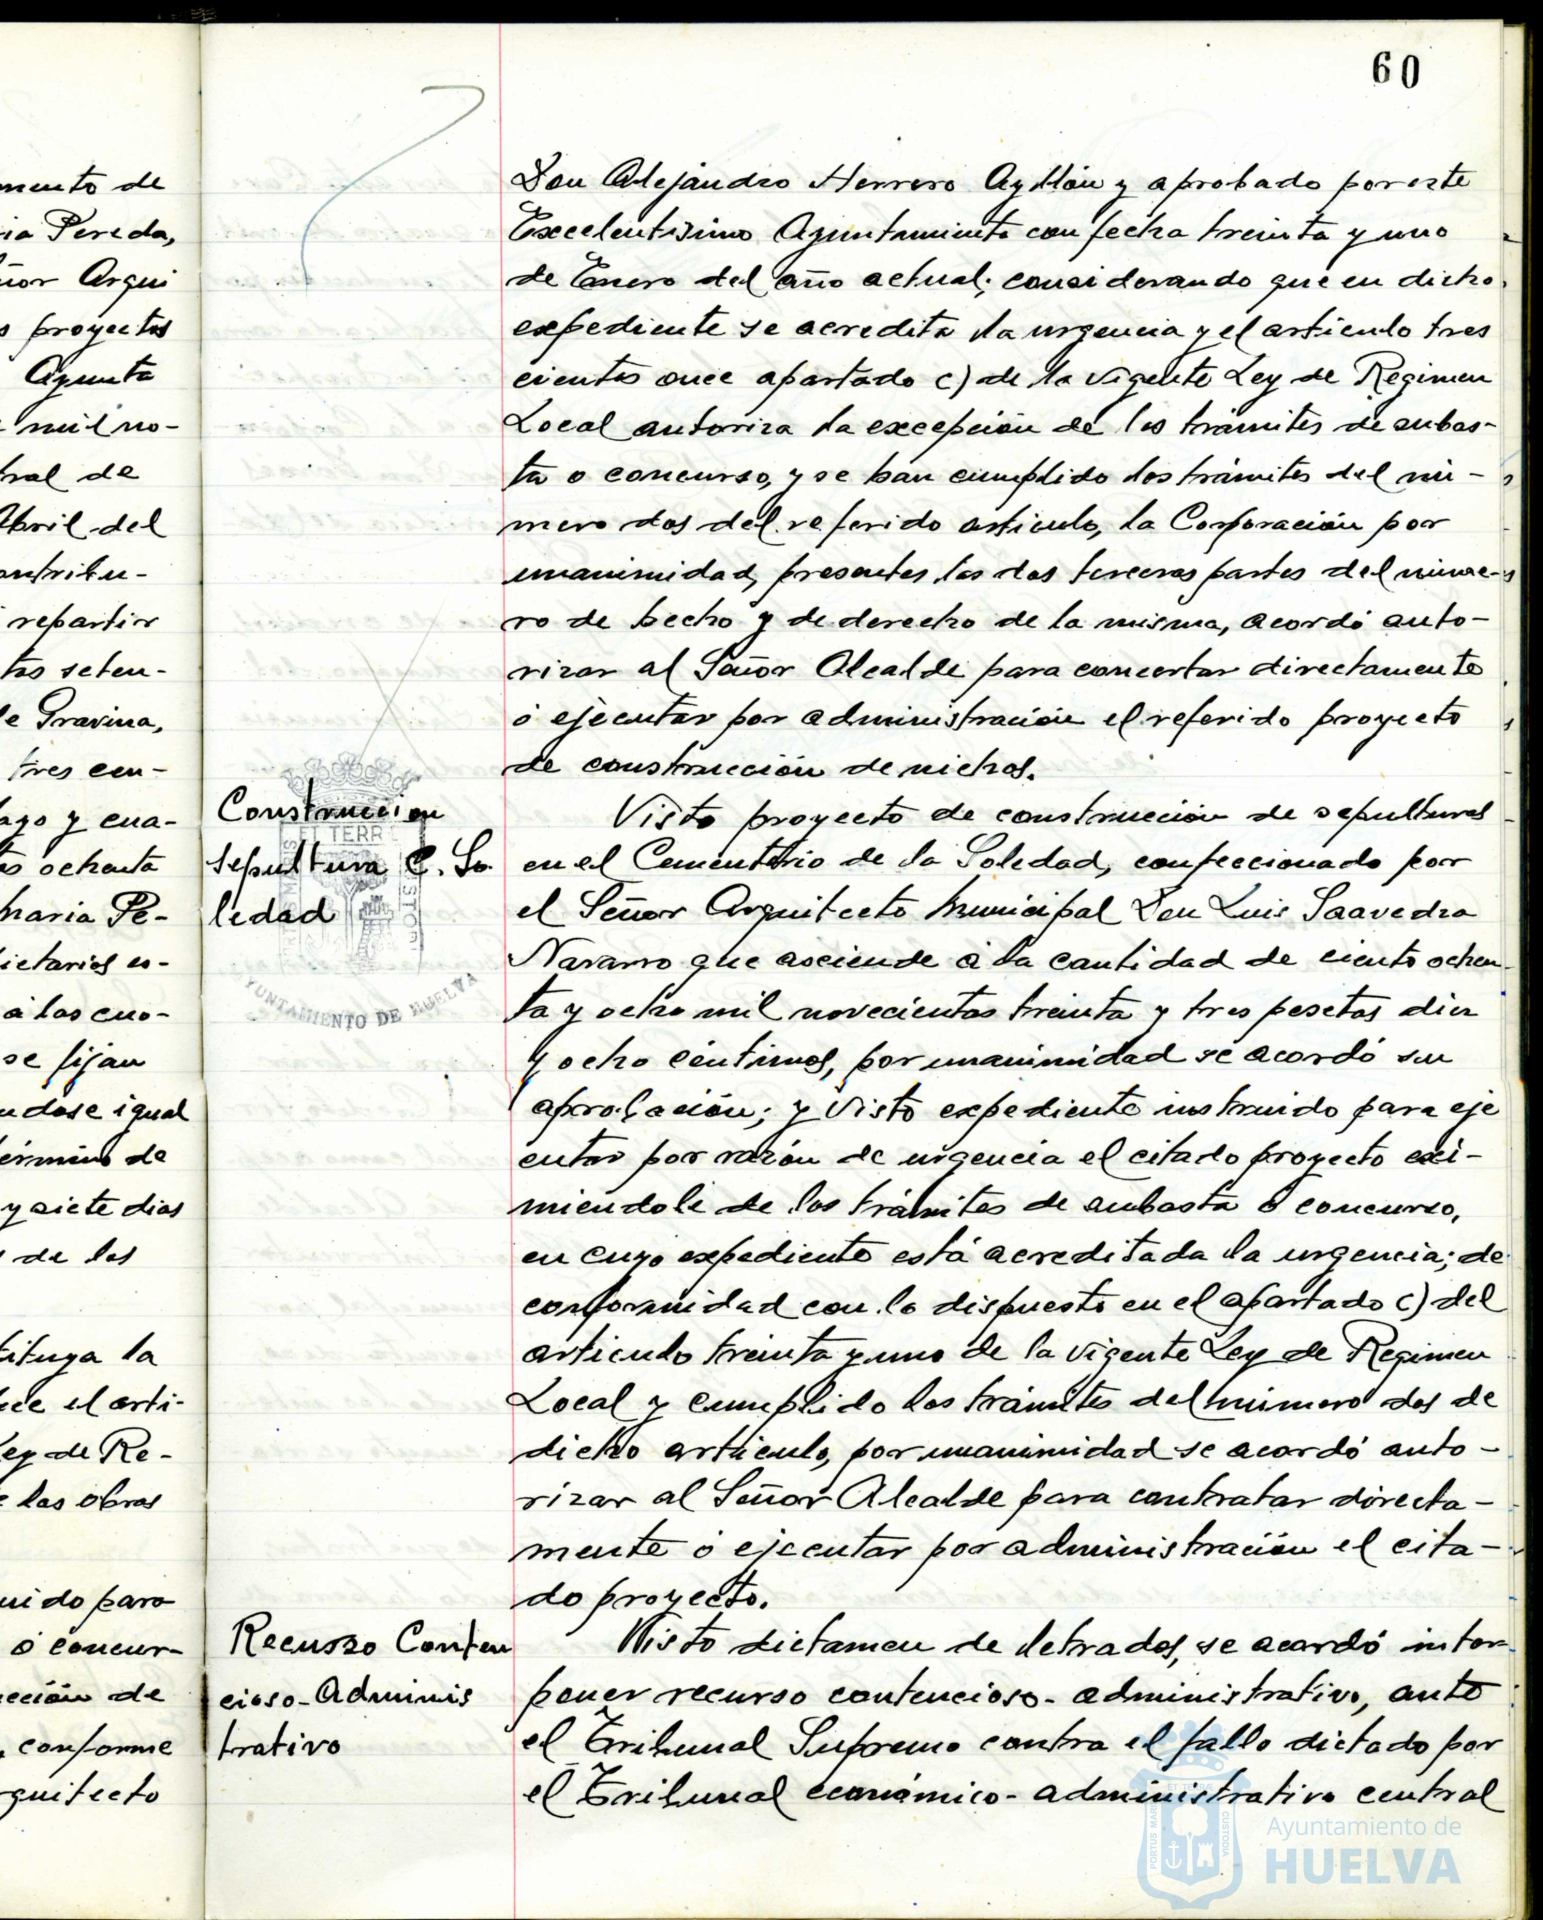 60
mento de
ia Pereda,
ñor Arqui
s proyectos
Ayunta
mil no-
ral de
Abril del
ontribu-
repartir
tos seten-
de Gravina,
tres cen-
ago y cua-
tos ochenta
haria Pe-
ietarios es-
a las cuo-
se fijan
ndose igual
término de
y siete dias
de los
tituya la
ece el arti-
Ley de Re-
e las obras
uido para
o concur-
cción de
, conforme
rquitecto
Don Alejandro Herrero Ayllón y aprobado por este
Excelentisimo Ayuntamiento con fecha treinta y uno
de Enero del año actual; considerando que en dicho
expediente se acredita la urgencia y el articulo tres
cientos once apartado c) de la vigente Ley de Regimen
Local autoriza la excepción de los trámites de subas-
ta o concurso, y se han cumplido los trámites del nú-
mero dos del referido articulo, la Corporación por
unanimidad, presentes las dos terceras partes del núme-
ro de hecho y de derecho de la misma, acordó auto-
rizar al Señor Alcalde para concertar directamente
ó ejecutar por administración el referido proyecto
de construcción de nichos.
Construccion
sepultura C. So
ledad
Visto proyecto de construcción de sepulturas
en el Cementerio de la Soledad, confeccionado por
el Señor Arquitecto Municipal Don Luis Saavedra
Navarro que asciende á la cantidad de ciento ochen-
ta y ocho mil novecientas treinta y tres pesetas diez
y ocho céntimos, por unanimidad se acordó su
aprobación; y Visto expediente instruido para eje
cutar por razón de urgencia el citado proyecto exi-
miendole de los trámites de subasta ó concurso,
en cuyo expediente está acreditada la urgencia; de
conformidad con lo dispuesto en el apartado c) del
articulo treinta y uno de la vigente Ley de Regimen
Local y cumplido los trámites del número dos de
dicho articulo, por unanimidad se acordó auto-
rizar al Señor Alcalde para contratar directa-
mente ó ejecutar por administración el cita-
do proyecto.
Recurso Conten
cioso-Adminis
trativo
Visto dictamen de letrados, se acordó inter-
poner recurso contencioso-administrativo, ante
el Tribunal Supremo contra el fallo dictado por
el Tribunal económico-administrativo central
ET TERR
CUSTOD
AYUNTAMIENTO DE HUELVA
PORTUS MARIS ET TERRAE CUSTODIA
Ayuntamiento de
HUELVA